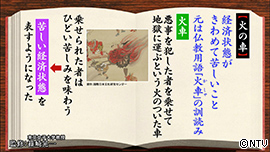 【火の車】
経済状態が
きわめて苦しいこと
元は仏教用語「火車」の訓読み
火車
悪事を犯した者を乗せて
地獄に運ぶという火のついた車
乗せられた者は
ひどい苦しみを味わう
苦しい経済状態を
表すようになった
©NTV